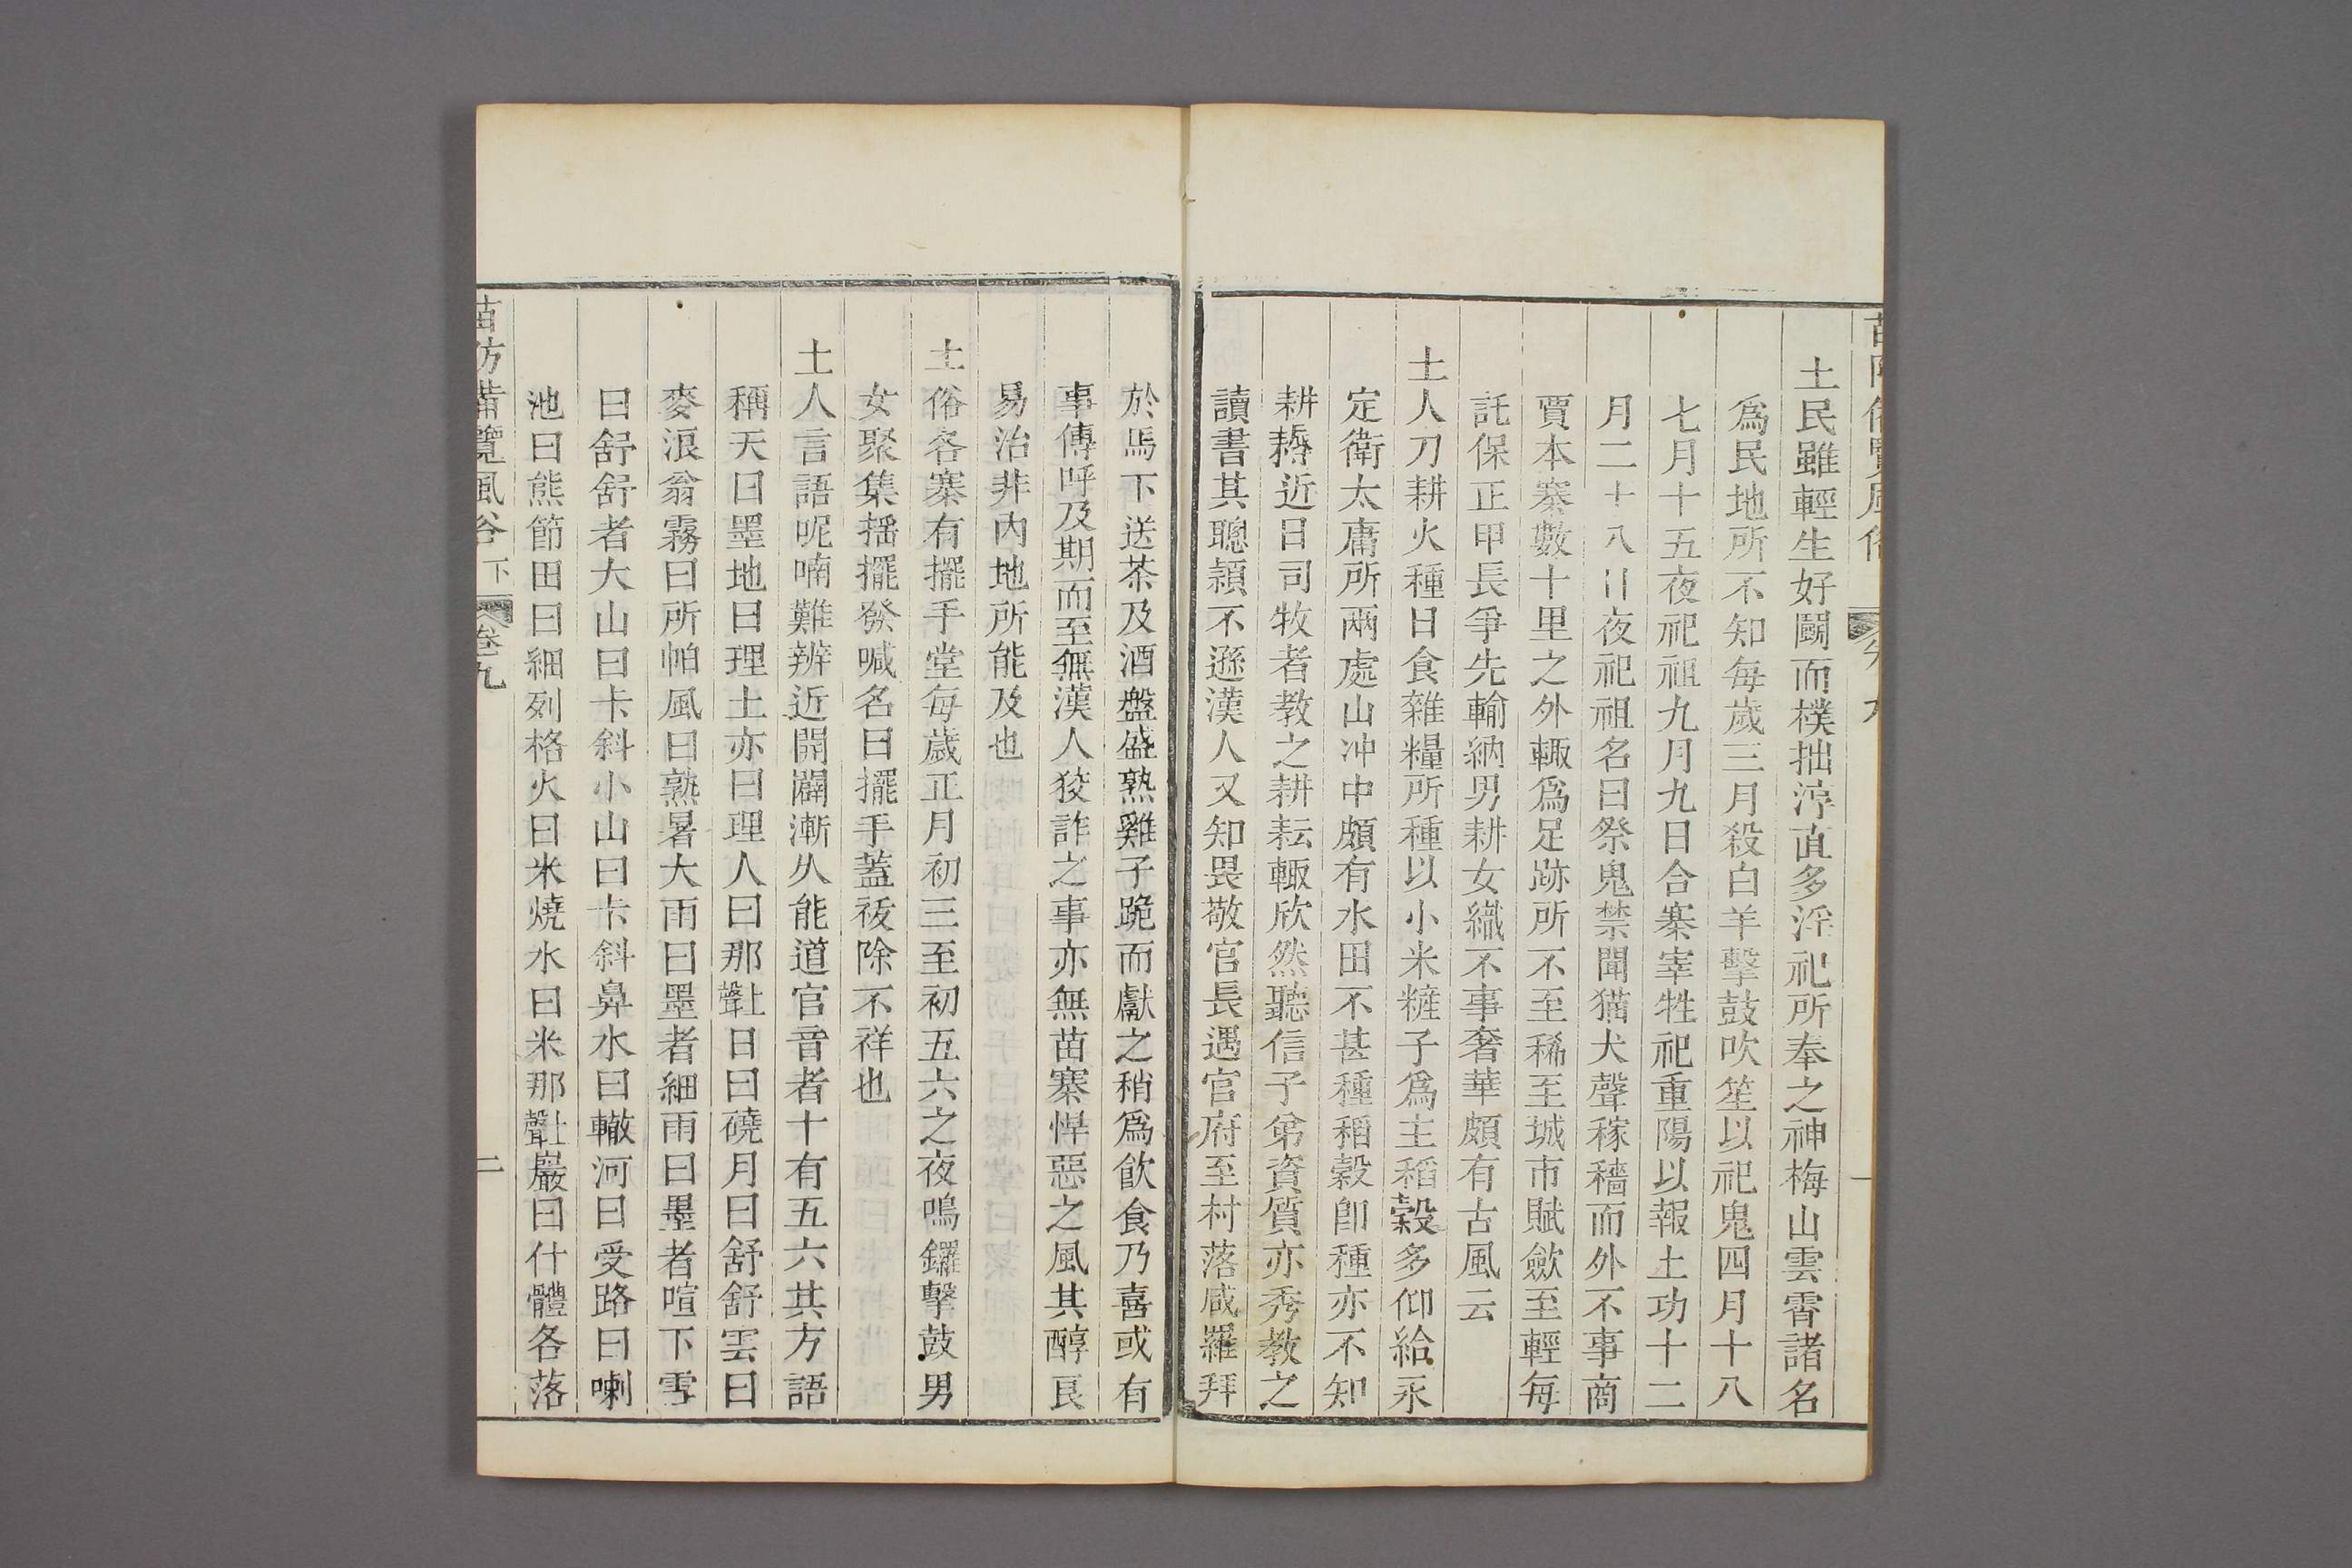 苗防備覽風俗 卷九 一
土民雖輕生好鬭而樸拙淳直多淫祀所奉之神梅山雲霄諸名
爲民地所不知每歲三月殺白羊擊鼓吹笙以祀鬼四月十八
七月十五夜祀祖九月九日合寨宰牲祀重陽以報土功十二
月二十八日夜祀祖名曰祭鬼禁聞猫犬聲稼穡而外不事商
賈本寨數十里之外輙爲足跡所不至稀至城市賦歛至輕每
託保正甲長爭先輸納男耕女織不事奢華頗有古風云
土人刀耕火種日食雜糧所種以小米糝子爲主稻穀多仰給永
定衛大庸所兩處山冲中頗有水田不甚種稻穀卽種亦不知
耕耨近日司牧者教之耕耘輙欣然聽信子弟資質亦秀教之
讀書其聰穎不遜漢人又知畏敬官長遇官府至村落咸羅拜
於馬下送茶及酒盤盛熟雞子跪而獻之稍爲飲食乃喜或有
事傳呼及期而至無漢人狡詐之事亦無苗寨悍惡之風其醇良
易治非內地所能及也
土俗各寨有擺手堂每歲正月初三至初五六之夜鳴鑼擊鼓男
女聚集摇擺發喊名曰擺手蓋祓除不祥也
土人言語呢喃難辨近開闢漸久能道官音者十有五六其方語
稱天曰墨地曰理土亦曰理人曰那上聲日曰磽月曰舒舒雲曰
麥浪翁霧曰所帕風曰熱暑大雨曰墨者細雨曰墨者喧下雪
曰舒舒者大山曰卡斜小山曰卡斜鼻水曰轍河曰受路曰喇
池曰熊節田曰細列格火曰米燒水曰米那上聲巖曰什體各落
苗防備覽風俗下 卷九 二